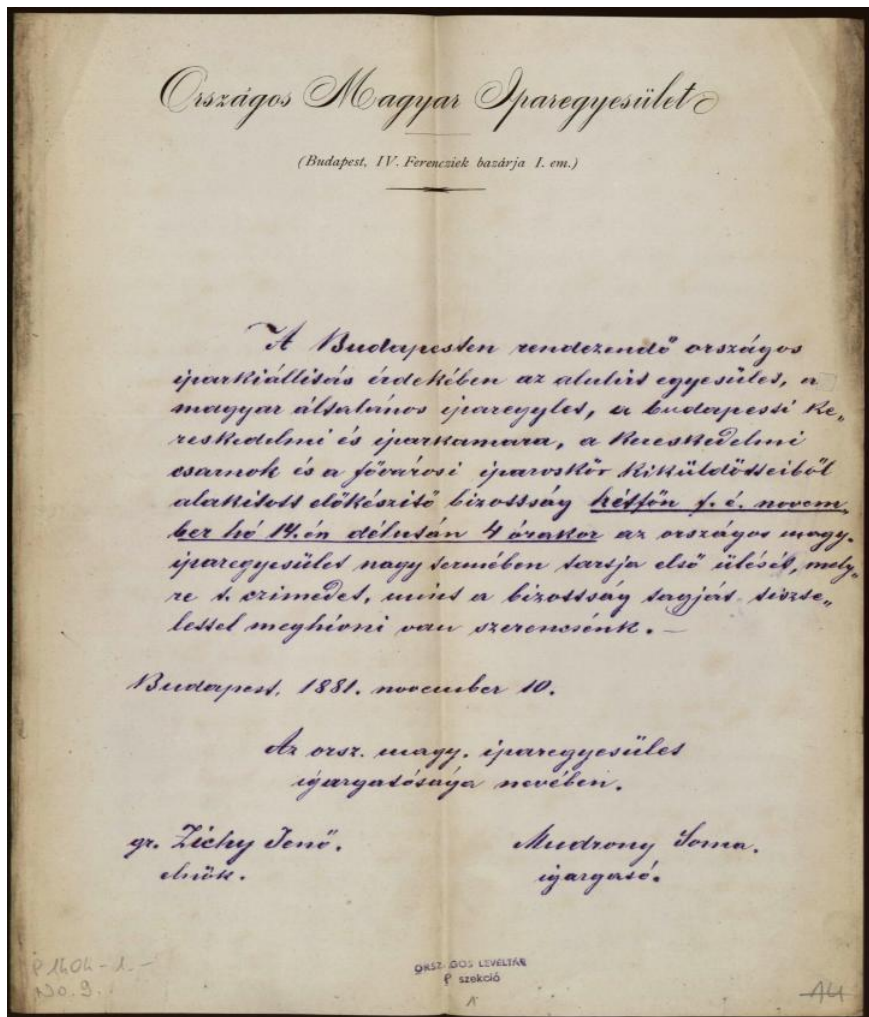 Országos Magyar Iparegyesület
(Budapest, IV. Ferencziek bazárja I. em.)
A Budapesten rendezendő országos
iparkiállitás érdekében az alulirt egyesület, a
magyar általános iparegylet, a budapesti ke„
reskedelmi és iparkamara, a kereskedelmi
csarnok és a fővárosi iparoskör kiküldötteiből
alakitott előkészitő bizottság hétfőn f. é. novem„
ber hó 14.én délután 4 órakor az országos magy.
iparegyesület nagy termében tartja első ülését, mely„
re t. czimedet, mint a bizottság tagját tiszte„
lettel meghivni van szerencsénk. –
Budapest, 1881. november 10.
Az orsz. magy. iparegyesület
igazgatósága nevében.
gr. Zichy Jenő. Mudrony Soma.
elnök. igazgató.
P 1404 - 1. -
No. 9.
ORSZÁGOS LEVÉLTÁR
P szekció
1
14